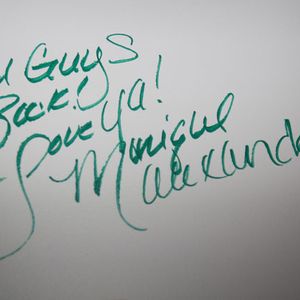 Guys
Rock!
Love Ya!
Monique
Alexand